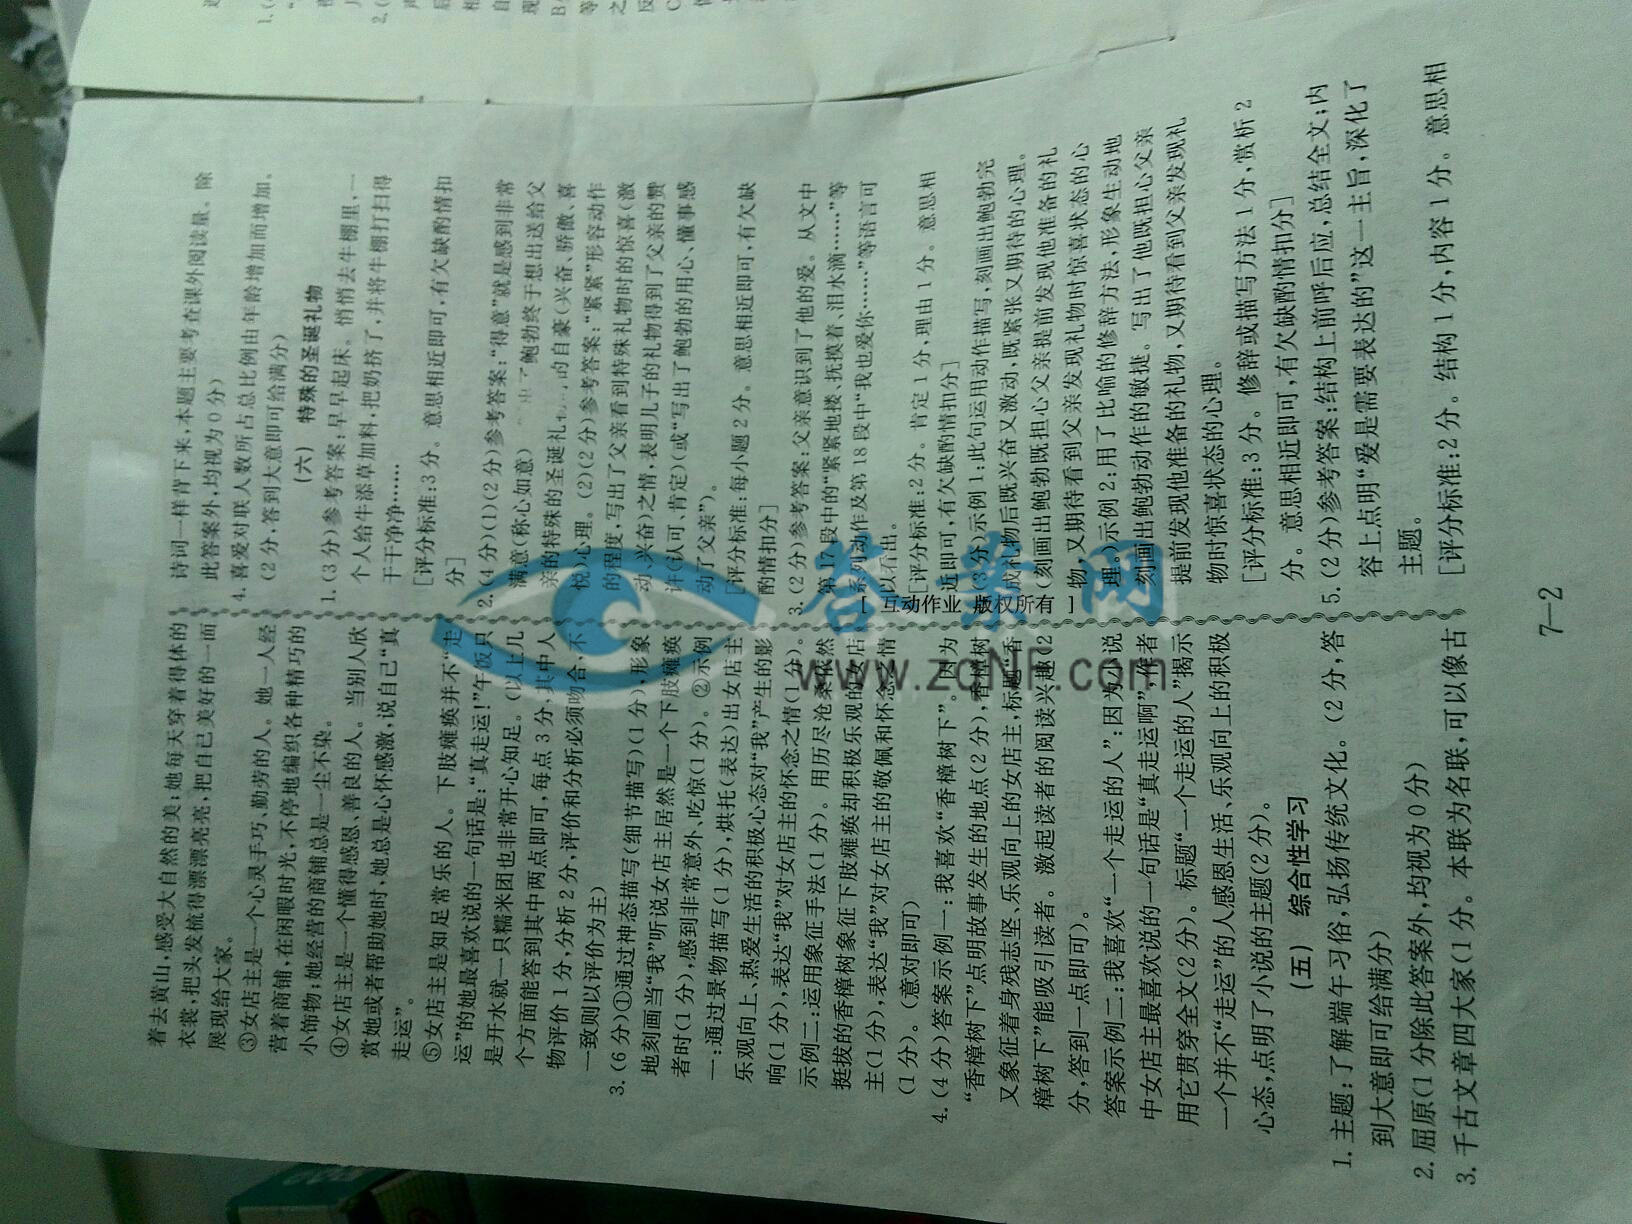 着去黄山,感受大自然的美;她每天穿着得体的
衣裳,把头发梳得漂漂亮亮,把自己美好的一面
展现给大家。
③女店主是一个心灵手巧、勤劳的人。她一人经
营着商铺,在闲暇时光,不停地编织各种精巧的
小饰物;她经营的商铺总是一尘不染。
④女店主是一个懂得感恩、善良的人。当别人欣
赏她或者帮助她时,她总是心怀感激,说自己“真
走运”。
⑤女店主是知足常乐的人。下肢瘫痪并不“走
运”的她最喜欢说的一句话是:“真走运!”午饭只
是开水就一只糯米团也非常开心知足。(以上几
个方面能答到其中两点即可,每点3分,其中人
物评价1分,分析2分,评价和分析必须吻合,不
一致则以评价为主)
3.(6分)①通过神态描写(细节描写)(1分),形象
地刻画当“我”听说女店主居然是一个下肢瘫痪
者时(1分),感到非常意外、吃惊(1分)。②示例
一:通过景物描写(1分),烘托(表达)出女店主
乐观向上、热爱生活的积极心态对“我”产生的影
响(1分),表达“我”对女店主的怀念之情(1分)。
示例二:运用象征手法(1分)。用历尽沧桑依然
挺拔的香樟树象征下肢瘫痪却积极乐观的女店
主(1分),表达“我”对女店主的敬佩和怀念之情
(1分)。(意对即可)
4.(4分)答案示例一:我喜欢“香樟树下”。因为
“香樟树下”点明故事发生的地点(2分),香樟树
又象征着身残志坚、乐观向上的女店主,标题“香
樟树下”能吸引读者。激起读者的阅读兴趣(2
分,答到一点即可)。
答案示例二:我喜欢“一个走运的人”:因为小说
中女店主最喜欢说的一句话是“真走运啊”,作者
用它贯穿全文(2分)。标题“一个走运的人”揭示
一个并不“走运”的人感恩生活、乐观向上的积极
心态,点明了小说的主题(2分)。
(五) 综合性学习
1.主题:了解端午习俗,弘扬传统文化。(2分,答
到大意即可给满分)
2.屈原(1分除此答案外,均视为0分)
3.千古文章四大家(1分。本联为名联,可以像古
诗词一样背下来,本题主要考查课外阅读量。除
此答案外,均视为0分)
4.喜爱对联人数所占总比例由年龄增加而增加。
(2分,答到大意即可给满分)
(六) 特殊的圣诞礼物
1.(3分)参考答案:早早起床。悄悄去牛棚里,一
个人给牛添草加料,把奶挤了,并将牛棚打扫得
干干净净……
[评分标准:3分。意思相近即可,有欠缺酌情扣
分]
2.(4分)(1)(2分)参考答案:“得意”就是感到非常
满意(称心如意) 鲍勃终于想出送给父
亲的特殊的圣诞礼 的自豪(兴奋、骄傲、喜
悦)心理。(2)(2分)参考答案:“紧紧”形容动作
的程度,写出了父亲看到特殊礼物时的惊喜(激
动、兴奋)之情,表明儿子的礼物得到了父亲的赞
许(认可、肯定)(或“写出了鲍勃的用心、懂事感
动了父亲”)。
[评分标准:每小题2分。意思相近即可,有欠缺
酌情扣分]
3.(2分)参考答案:父亲意识到了他的爱。从文中
第17段中的“紧紧地搂、抚摸着、泪水滴……”等
一系列动作及第18段中“我也爱你……”等语言可
以看出。
[评分标准:2分。肯定1分,理由1分。意思相
近即可,有欠缺酌情扣分]
4.(3分)示例1:此句运用动作描写,刻画出鲍勃完
成礼物后既兴奋又激动,既紧张又期待的心理。
(刻画出鲍勃既担心父亲提前发现他准备的礼
物,又期待看到父亲发现礼物时惊喜状态的心
理。)示例2:用了比喻的修辞方法,形象生动地
刻画出鲍勃动作的敏捷。写出了他既担心父亲
提前发现他准备的礼物,又期待看到父亲发现礼
物时惊喜状态的心理。
[评分标准:3分。修辞或描写方法1分,赏析2
分。意思相近即可,有欠缺酌情扣分]
5.(2分)参考答案:结构上前呼后应,总结全文;内
容上点明“爱是需要表达的”这一主旨,深化了
主题。
[评分标准:2分。结构1分,内容1分。意思相
7—2
答案网
www.zqNF.com
[ 互动作业 版权所有 ]